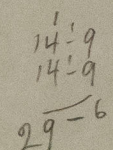 1
14 - 9
14 - 9
29 - 6